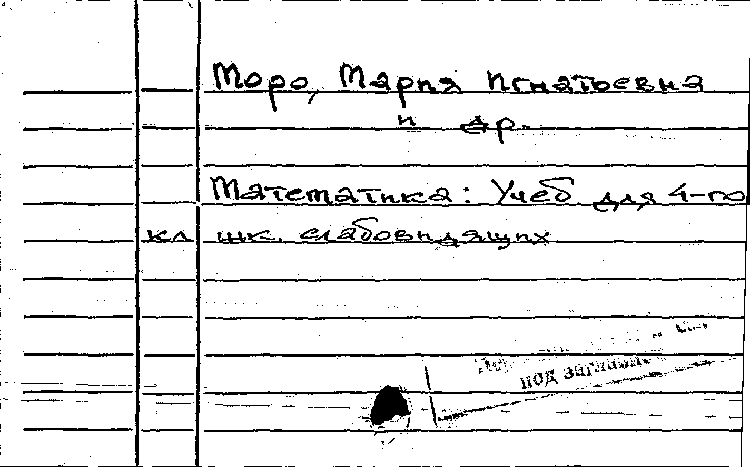 Моро, Мария Игнатьевна
и др.
Математика: Учеб для 4-го
кл шк. слабовидящих
под